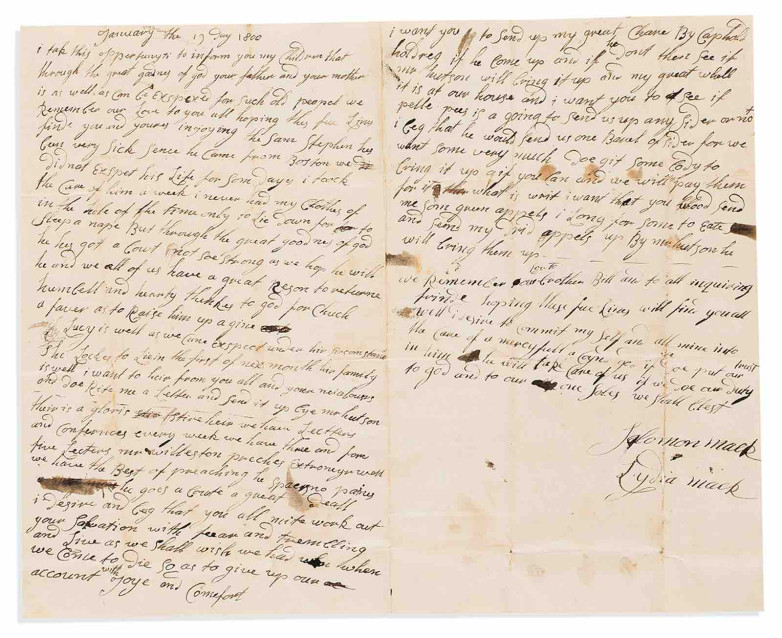 January the 19 Day 1800
i take this opportunyti to inform you my Children that
through the great gooines of god your father and your mother
is as well as Can be Exspeced for Such old peopel we
Remember our Love to you all hoping this few Lines
finde you and yours injoying the Same Stephen hes
Been very Sick Sence he Came from Boston we
did not Exspet his Life for Som Days i took
the Care of him a week i never had my Clothes of
in the hole of the time only to Lie down for to
Sleep a nape But through the great goodnes of god
he hes got a Bout not Soe Strong as we hop he will
he and we all of us have a great Reson to returne
humbell and hearty thenkes to god for Such
a faver as to Raise him up a gine
Lucy is well as we Cane Exspect under hir Sircomstance
She Lookes to Liein the first of nex month hir family
is well i want to heir from you all and your neiabours
and doe Rite me a Letter and Send it up Bye mr hutson
their is a gloris time heir we have Lectters
and Confernces every week we have three and fore
five Lecters mr willeston preches Extromeyr well
we have the Best of preaching he Spaers no paines
he goes a Brote a great deall
i desire and Beg that you all mite work out
your Salvation with fear and trembling
and Live as we Shall wish we had when
we Come to die So as to give up our
account with Joye and Comefort
i want you to Send up my great Chare By Capt
holdreg if he Come up and if he dont there See if
mr hutson will bring it up and my great whell
it is at our house and i want you to See if
pelle pees is a going to Send us up any Sider or not
i beg that he would Send us one Barel of Sider for we
want Some very much doe git Some Body to
bring it up gif you Can and we will pay them
for it what is writ i want that you wood Send
me Som green appels i Long for Some to Eate
and Sens my drid appels up By mr hutson he
will bring them up
we Remember our Love to brother Bill and to all inquiring
frinds hoping these few Lines will find you all
well i desire to Commit my Self and all mine into
the Care of a mercyfull a God if we doe put our trust
in him he will take Care of us if we doe our duty
to god and to our one Soles we Shall Blest
Solomon mack
Lydia mack